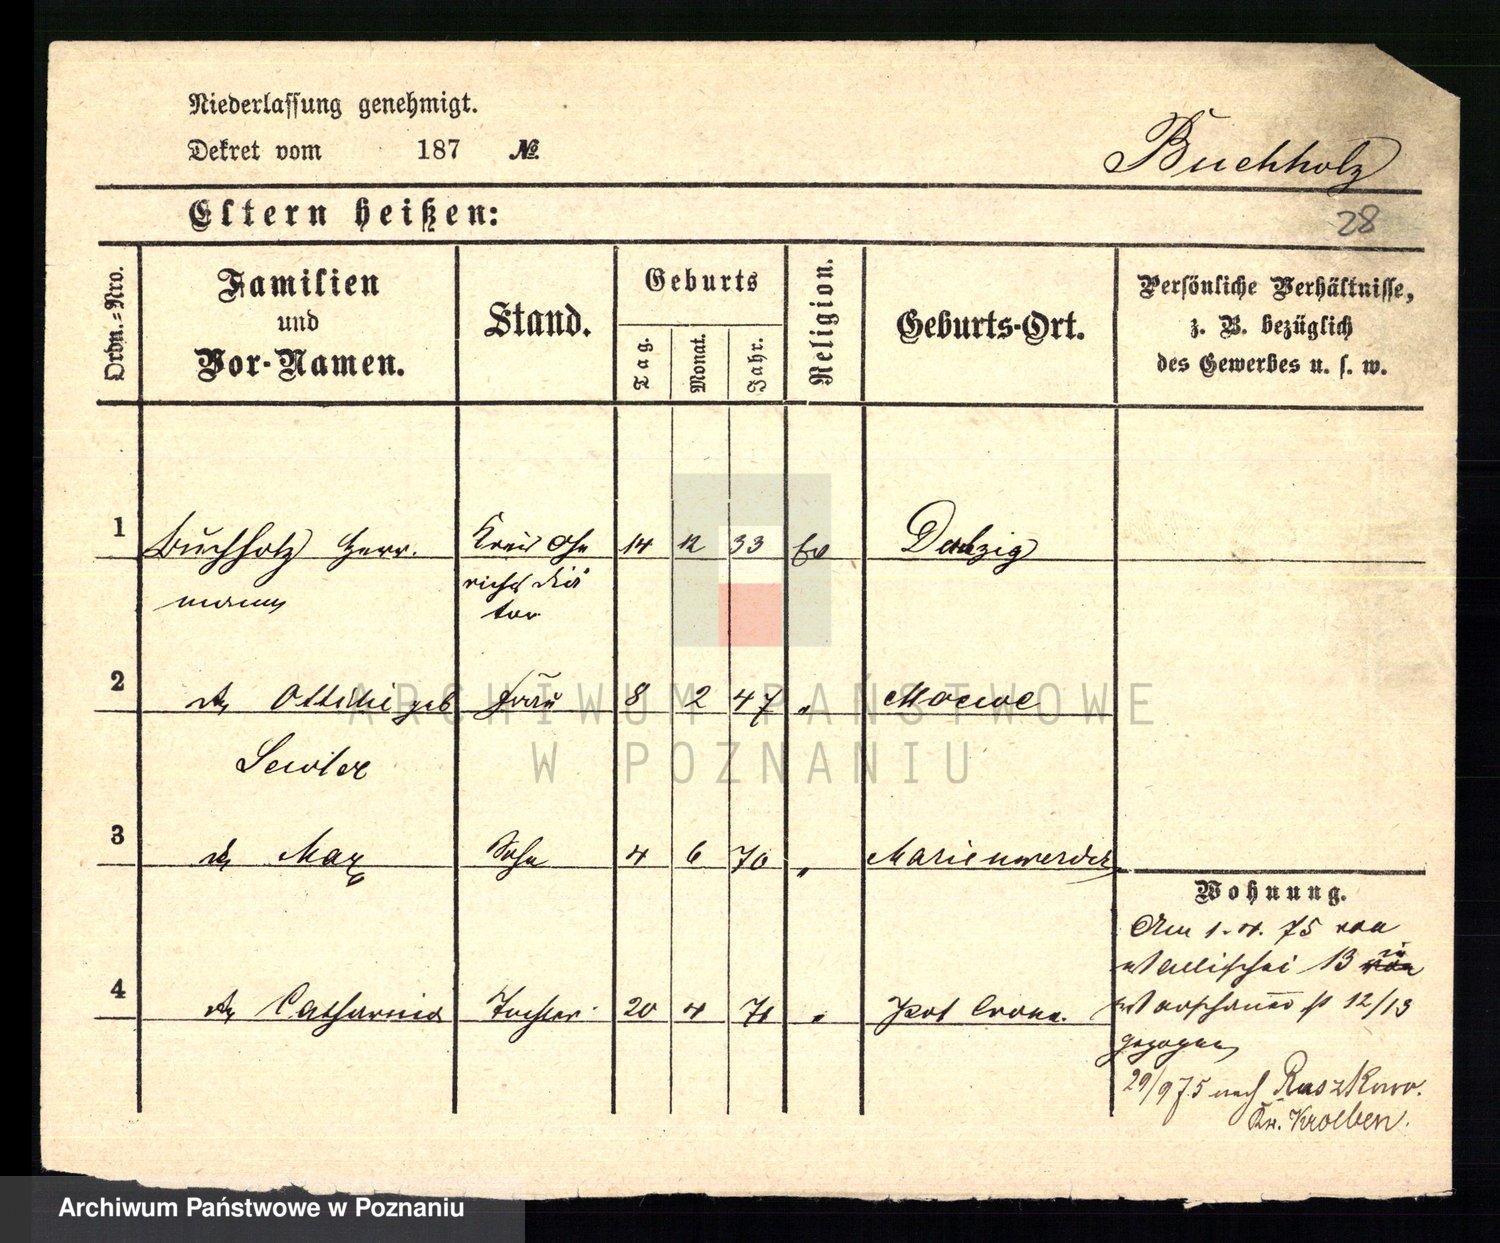 Niederlassung genehmigt.
Dekret vom 187 №
Buchholz
Eltern heißen:
28
Ordn.-Nro.
Familien
und
Vor-Namen.
Stand.
Geburts
Tag.
Monat.
Jahr.
Religion.
Geburts-Ort.
Persönliche Verhältnisse,
z. B. bezüglich
des Gewerbes u. s. w.
1 Buchholz Herr- Kreis 14 12 33 Ev Danzig
mann
tor
2 Ottilie geb Frau 8 2 47 "
3 Max Sohn 4 6 70 " Marienwerder
Wohnung.
Am 1. 4. 75 von
Wallischei 13 in
4 Catharina Tochter 20 4 71 "
Warschauer st 12/13
gezogen
29/9 75 nach Ruszkowo.
Kr. Kroeben.
ARCHIWUM PAŃSTWOWE
W POZNANIU
Archiwum Państwowe w Poznaniu